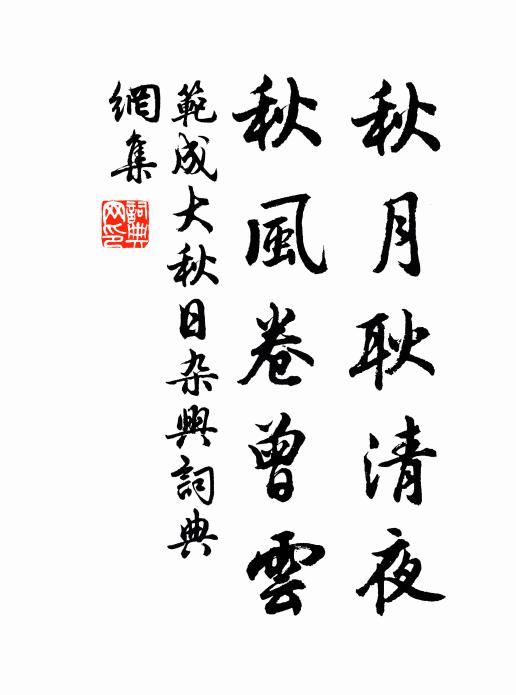 秋月耿清夜
秋風卷曾雲
範成大秋日杂興詞典
網集
詞典
网印